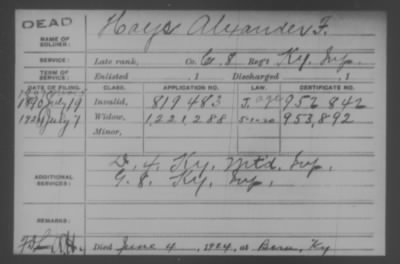 DEAD
NAME OF SOLDIER:
Hays Alexander F.
SERVICE:
Late rank, Co. G. 8 Reg't Ky. Inf.
TERM OF SERVICE:
Enlisted , 1 Discharged , 1
DATE OF FILING. CLASS. APPLICATION NO. LAW. CERTIFICATE NO.
1890 July 19 Invalid, 819483 J. age 952842
1924 July 7 Widow, 1,221,288 5-1-20 953,892
Minor,
ADDITIONAL SERVICES:
D. 4. Ky. Mtd. Inf.
G. 8. Ky. Inf.
REMARKS:
Died June 4, 1924, at Berea, Ky